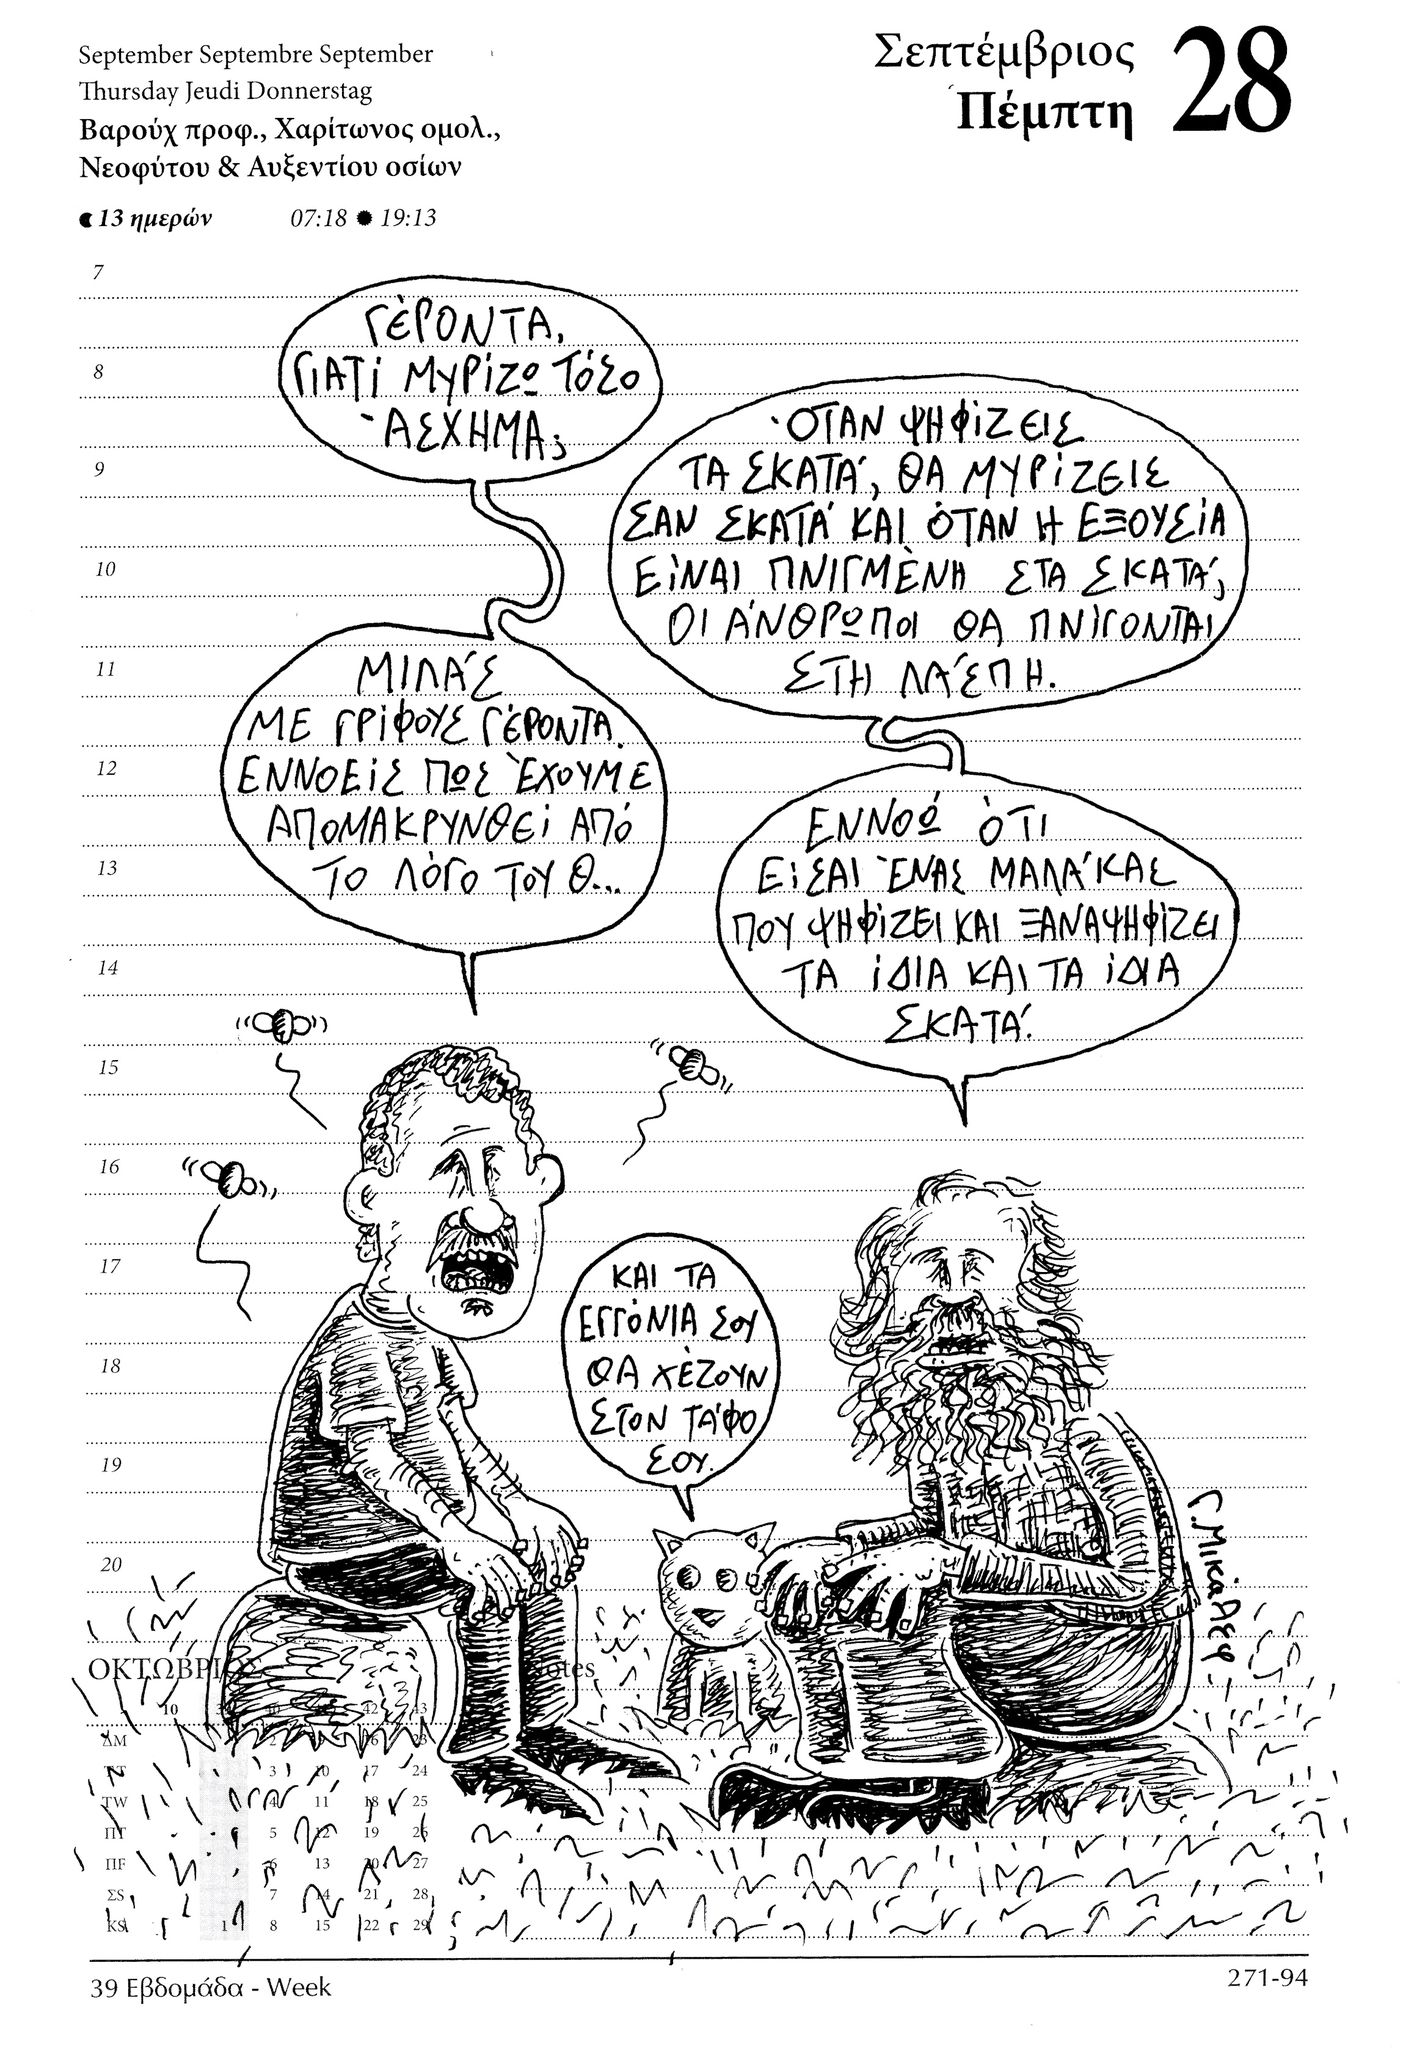 September Septembre September
Thursday Jeudi Donnerstag
Βαρούχ προφ., Χαρίτωνος ομολ.,
Νεοφύτου & Αυξεντίου οσίων
13 ημερών 07:18 19:13
Σεπτέμβριος
Πέμπτη
28
7
8
9
10
11
12
13
14
15
16
17
18
19
20
ΓΈΡΟΝΤΑ,
ΓΙΑΤΊ ΜΥΡΊΖΩ ΤΌΣΟ
ΆΣΧΗΜΑ;
ΌΤΑΝ ΨΗΦΊΖΕΙΣ
ΤΑ ΣΚΑΤΆ, ΘΑ ΜΥΡΊΖΕΙΣ
ΣΑΝ ΣΚΑΤΆ ΚΑΙ ΌΤΑΝ Η ΕΞΟΥΣΊΑ
ΕΊΝΑΙ ΠΝΙΓΜΈΝΗ ΣΤΑ ΣΚΑΤΆ,
ΟΙ ΆΝΘΡΩΠΟΙ ΘΑ ΠΝΊΓΟΝΤΑΙ
ΣΤΗ ΛΆΣΠΗ.
ΜΙΛΆΣ
ΜΕ ΓΡΊΦΟΥΣ ΓΈΡΟΝΤΑ.
ΕΝΝΟΕΊΣ ΠΩΣ ΈΧΟΥΜΕ
ΑΠΟΜΑΚΡΥΝΘΕΊ ΑΠΌ
ΤΟ ΛΌΓΟ ΤΟΥ Θ...
ΕΝΝΟΏ ΌΤΙ
ΕΊΣΑΙ ΈΝΑΣ ΜΑΛΆΚΑΣ
ΠΟΥ ΨΗΦΊΖΕΙ ΚΑΙ ΞΑΝΑΨΗΦΊΖΕΙ
ΤΑ ΊΔΙΑ ΚΑΙ ΤΑ ΊΔΙΑ
ΣΚΑΤΆ.
ΚΑΙ ΤΑ
ΕΓΓΌΝΙΑ ΣΟΥ
ΘΑ ΧΈΖΟΥΝ
ΣΤΟΝ ΤΆΦΟ
ΣΟΥ.
Γ. Μικάλεφ
ΟΚΤΩΒΡΙΟΣ
Notes
10 42 43
ΔΜ 2 16 23
3 10 17 24
TW 4 11 18 25
ΠΤ 5 12 19 26
ΠF 6 13 20 27
ΣS 7 14 21 28
KS 1 8 15 22 29
39 Εβδομάδα - Week
271-94